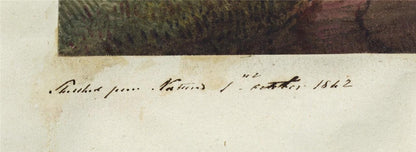 Sketched from Nature 1st October 1842